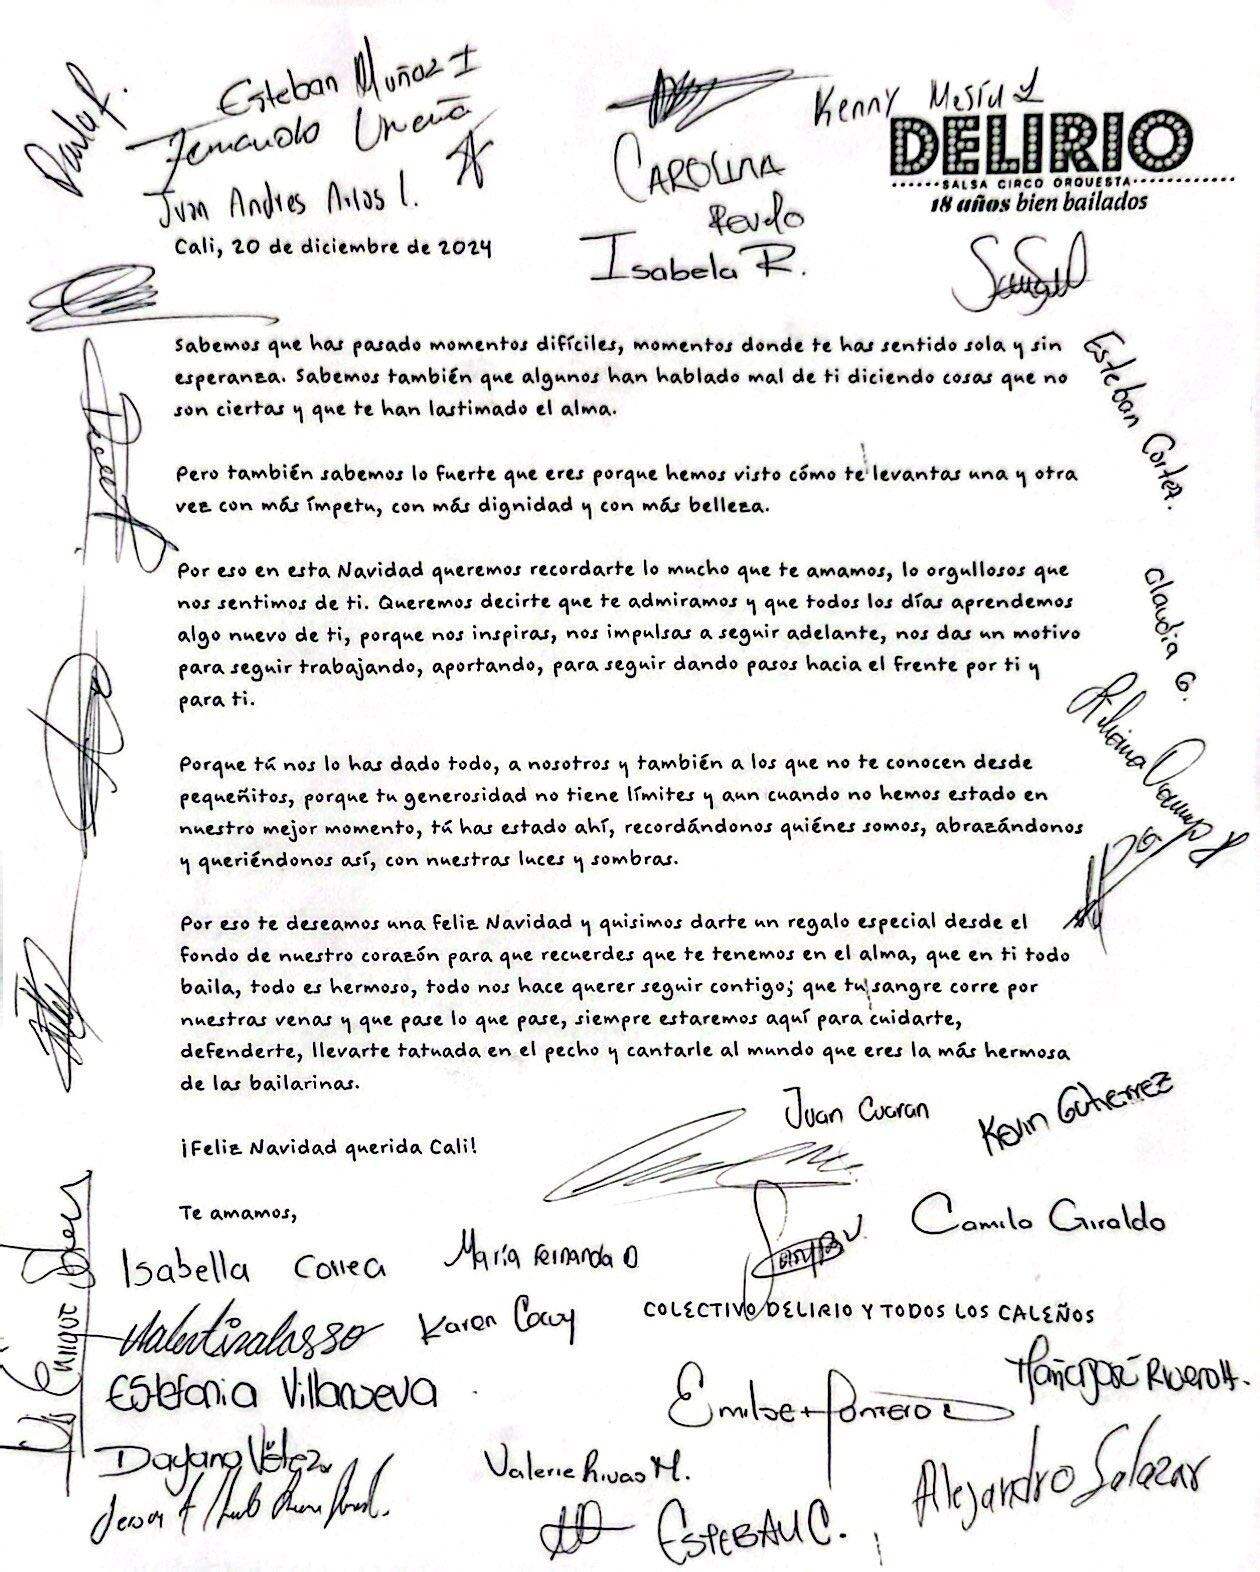 Paula R.
Esteban Muñoz I
Fernando Urueña
Juan Andres Arias L.
Cali, 20 de diciembre de 2024
CAROLINA
Revelo
Isabela R.
Kenny Mesíu L
DELIRIO
SALSA CIRCO ORQUESTA
18 años bien bailados
Sabemos que has pasado momentos difíciles, momentos donde te has sentido sola y sin
esperanza. Sabemos también que algunos han hablado mal de ti diciendo cosas que no
son ciertas y que te han lastimado el alma.
Pero también sabemos lo fuerte que eres porque hemos visto cómo te levantas una y otra
vez con más ímpetu, con más dignidad y con más belleza.
Por eso en esta Navidad queremos recordarte lo mucho que te amamos, lo orgullosos que
nos sentimos de ti. Queremos decirte que te admiramos y que todos los días aprendemos
algo nuevo de ti, porque nos inspiras, nos impulsas a seguir adelante, nos das un motivo
para seguir trabajando, aportando, para seguir dando pasos hacia el frente por ti y
para ti.
Porque tú nos lo has dado todo, a nosotros y también a los que no te conocen desde
pequeñitos, porque tu generosidad no tiene límites y aun cuando no hemos estado en
nuestro mejor momento, tú has estado ahí, recordándonos quiénes somos, abrazándonos
y queriéndonos así, con nuestras luces y sombras.
Por eso te deseamos una Feliz Navidad y quisimos darte un regalo especial desde el
fondo de nuestro corazón para que recuerdes que te tenemos en el alma, que en ti todo
baila, todo es hermoso, todo nos hace querer seguir contigo; que tu sangre corre por
nuestras venas y que pase lo que pase, siempre estaremos aquí para cuidarte,
defenderte, llevarte tatuada en el pecho y cantarle al mundo que eres la más hermosa
de las bailarinas.
Esteban Cortez.
Claudia G.
Liliana
¡Feliz Navidad querida Cali!
Te amamos,
Juan Cuaran
Kevin Gutierrez
Camilo Giraldo
Isabella Correa
María Fernanda O
Valentina Lasso
Karen
COLECTIVO DELIRIO Y TODOS LOS CALEÑOS
Estefania Villanueva
Emilse
María José Rivero H.
Dayana Vélez
Valerie Rivas M.
Alejandro Salazar
ESTEBAN C.